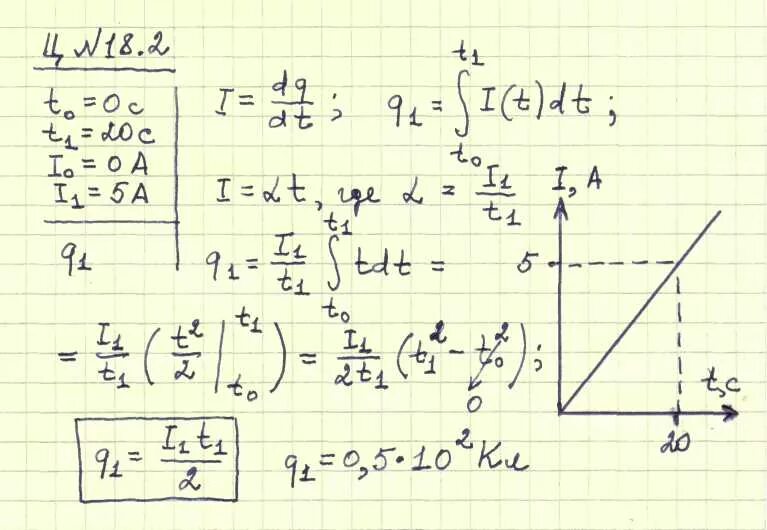 Ц №18.2
t₀ = 0 с
t₁ = 20 с
I₀ = 0 А
I₁ = 5 А
q₁
I = dq/dt ; q₁ = ∫_{t₀}^{t₁} I(t)dt ;
I = αt, где α = I₁/t₁
q₁ = I₁/t₁ ∫_{t₀}^{t₁} tdt =
= I₁/t₁ ( t²/2 |_{t₀}^{t₁} ) = I₁/2t₁ ( t₁² − t₀² ) ;
0
q₁ = I₁t₁/2
q₁ = 0,5·10² Кл
I, А
5
t, с
20